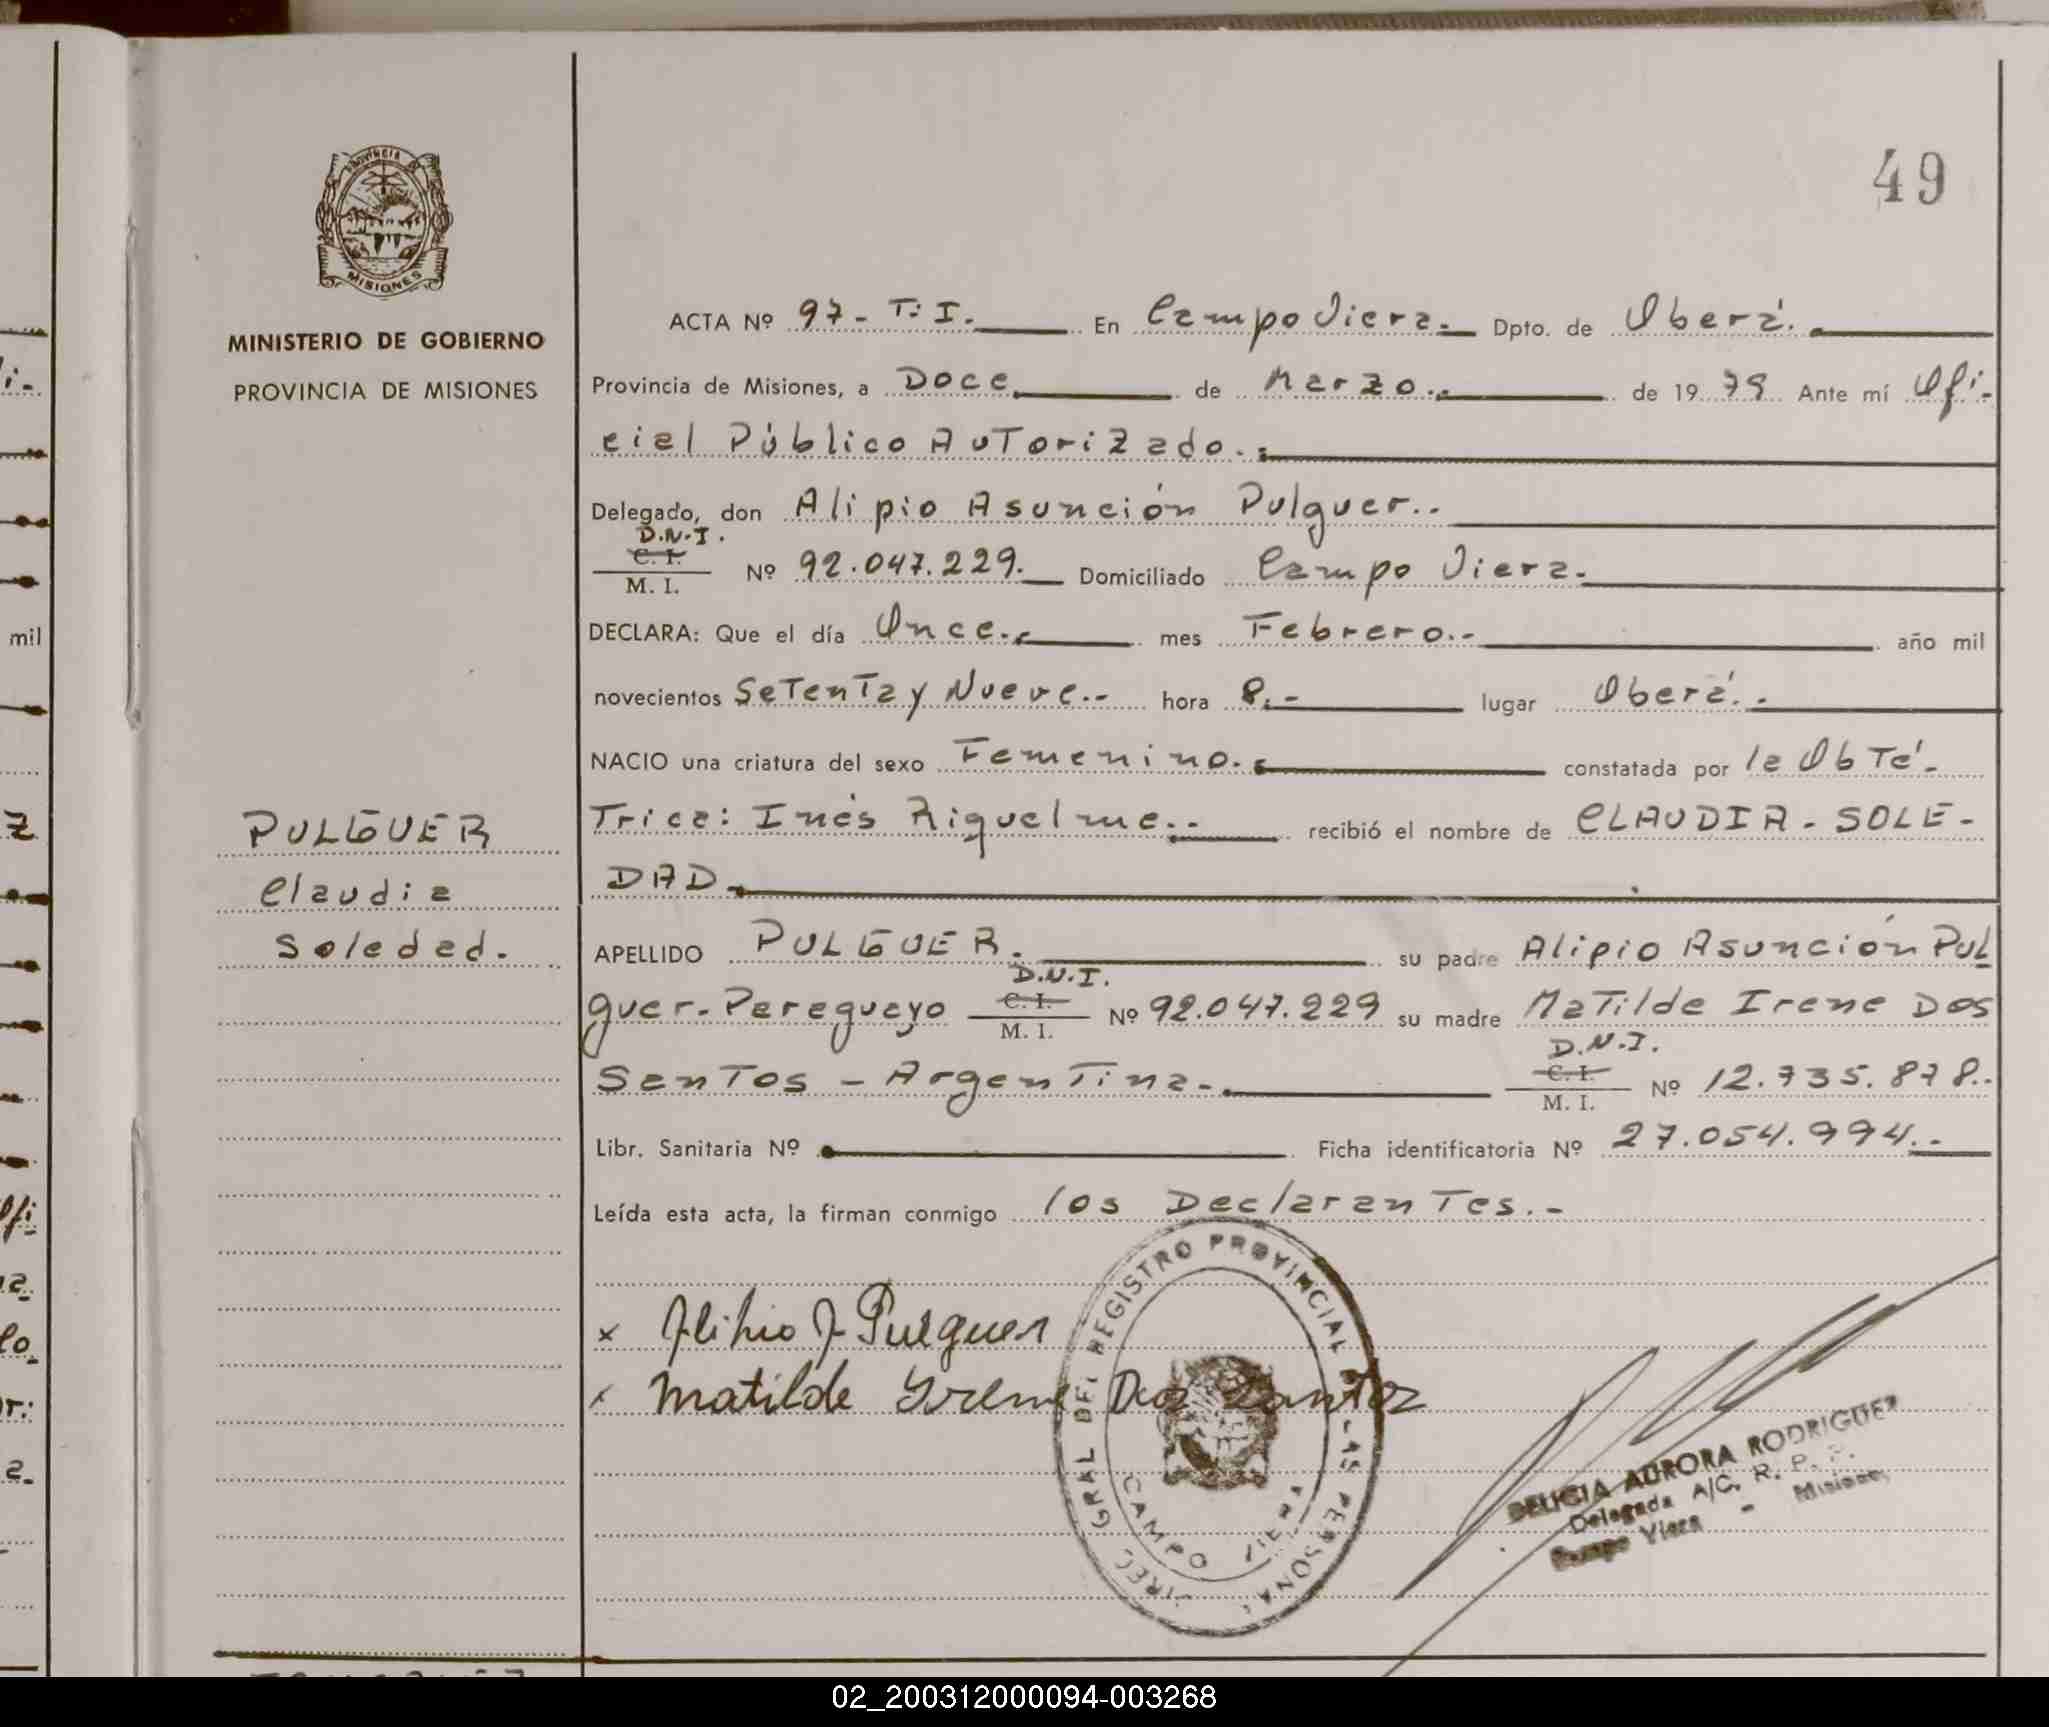 49
PROVINCIA
MISIONES
MINISTERIO DE GOBIERNO
PROVINCIA DE MISIONES
PULGUER
Claudia
Soledad.
ACTA Nº 97- T: I. En Campo Viera. Dpto. de Oberá.
Provincia de Misiones, a Doce de Marzo. de 1979 Ante mí Ofi-
cial Público Autorizado.
Delegado, don Alipio Asunción Pulguer..
D.N.I.
C. I.
M. I. Nº 92.047.229. Domiciliado Campo Viera.
DECLARA: Que el día Once. mes Febrero.- año mil
novecientos Setenta y Nueve.- hora 8.- lugar Oberá.-
NACIO una criatura del sexo Femenino. constatada por la Obté-
Trica: Inés Riquelme.- recibió el nombre de CLAUDIA - SOLE-
DAD
APELLIDO PULGUER. su padre Alipio Asunción Pul
D.N.I.
guer-Paraguayo C. I. Nº 92.047.229 su madre Matilde Irene Dos
M. I.
D.N.I.
Santos - Argentina.- C. I. Nº 12.735.878..
M. I.
Libr. Sanitaria Nº Ficha identificatoria Nº 27.054.994.-
Leída esta acta, la firman conmigo los Declarantes.-
x Alipio A Pulguer
x Matilde Yrene Dos Santos
DIREC. GRAL DEL REGISTRO PROVINCIAL DE LAS PERSONAS
CAMPO VIERA
DELICIA AURORA RODRIGUEZ
Delegada A/C. R. P. P.
Campo Viera - Misiones
mil
02_200312000094-003268